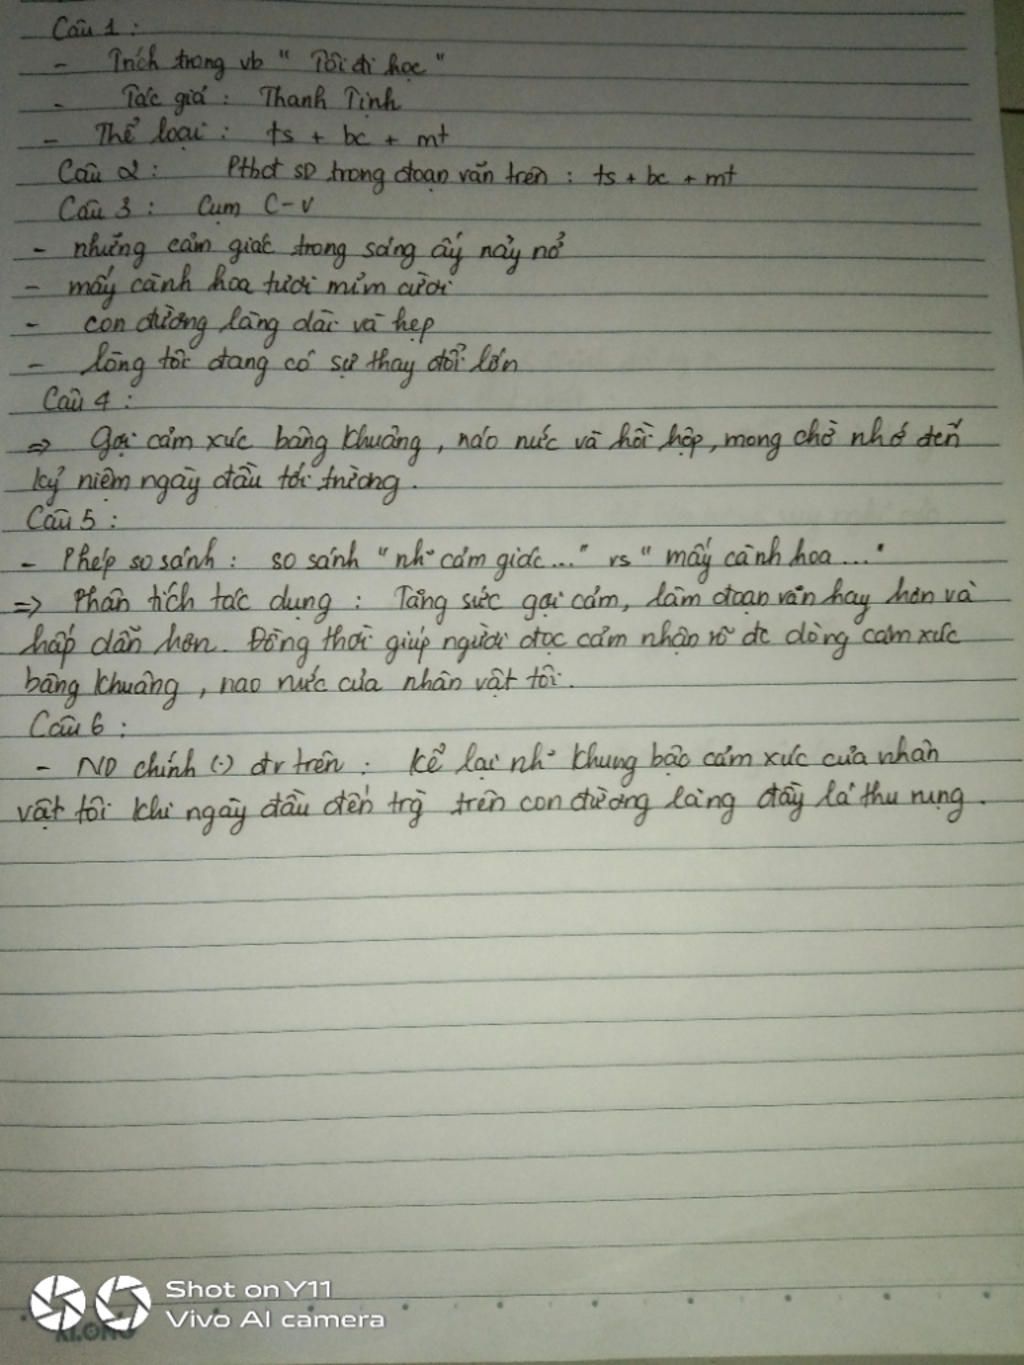 Câu 1 :
- Trích trong vb " Tôi đi học "
- Tác giả : Thanh Tịnh
- Thể loại : ts + bc + mt
Câu 2 : Ptbđ SD trong đoạn văn trên : ts + bc + mt
Câu 3 : Cụm C-V
- những cảm giác trong sáng ấy nảy nở
- mấy cành hoa tươi mỉm cười
- con đường làng dài và hẹp
- lòng tôi đang có sự thay đổi lớn
Câu 4 :
=> Gợi cảm xúc bâng khuâng , náo nức và hồi hộp, mong chờ nhớ đến
kỷ niệm ngày đầu tới trường .
Câu 5 :
- Phép so sánh : so sánh " nh~ cảm giác... " vs " mấy cành hoa ... "
=> Phân tích tác dụng : Tăng sức gợi cảm, làm đoạn văn hay hơn và
hấp dẫn hơn. Đồng thời giúp người đọc cảm nhận rõ đc dòng cảm xúc
bâng khuâng , nao nức của nhân vật tôi.
Câu 6 :
- ND chính (.) đv trên : Kể lại nh~ khung bậc cảm xúc của nhân
vật tôi khi ngày đầu đến trg trên con đường làng đầy lá thu rụng .
Shot on Y11
Vivo AI camera
KLONG